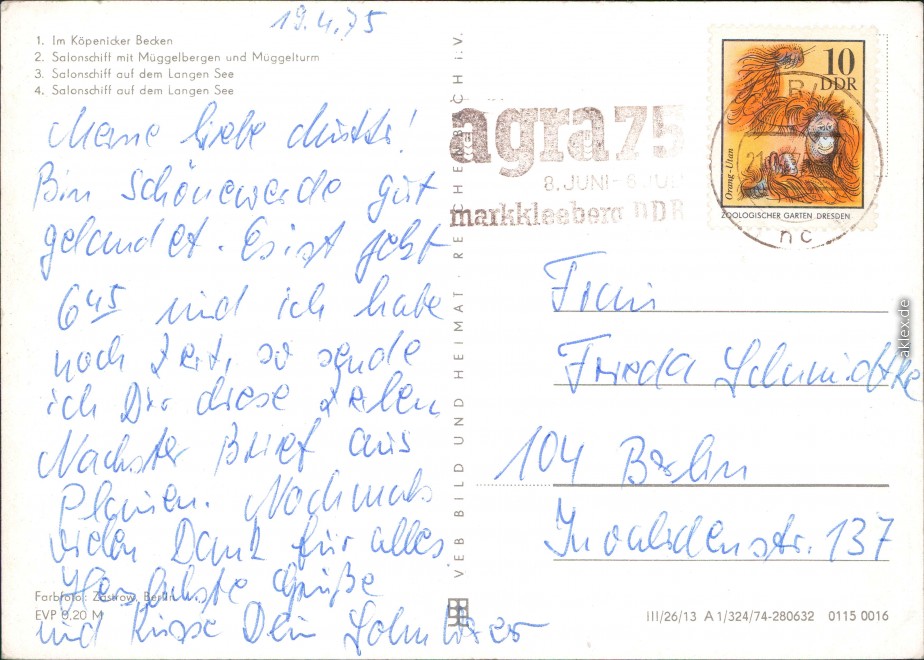 19.4.75
1. Im Köpenicker Becken
2. Salonschiff mit Müggelbergen und Müggelturm
3. Salonschiff auf dem Langen See
4. Salonschiff auf dem Langen See
Meine liebe Mutti!
Bin Schönewerde gut
gelandet. Es ist jetzt
6 45 und ich habe
noch Zeit, so sende
ich Dir diese Zeilen
Nächster Brief aus
Plauen. Nochmals
vielen Dank für alles
Herzlichste Grüße
und Küsse Dein
Farbfoto: Zastrow, Berlin
EVP 0,20 M
VEB BILD UND HEIMAT · REICHENBACH i. V.
agra75
8. JUNI-6. JULI
markkleeberg DDR
10
DDR
Orang-Utan
ZOOLOGISCHER GARTEN DRESDEN
nc
Frau
Frieda Schmidtke
104 Berlin
Invalidenstr. 137
III/26/13 A 1/324/74-280632 0115 0016
aklex.de